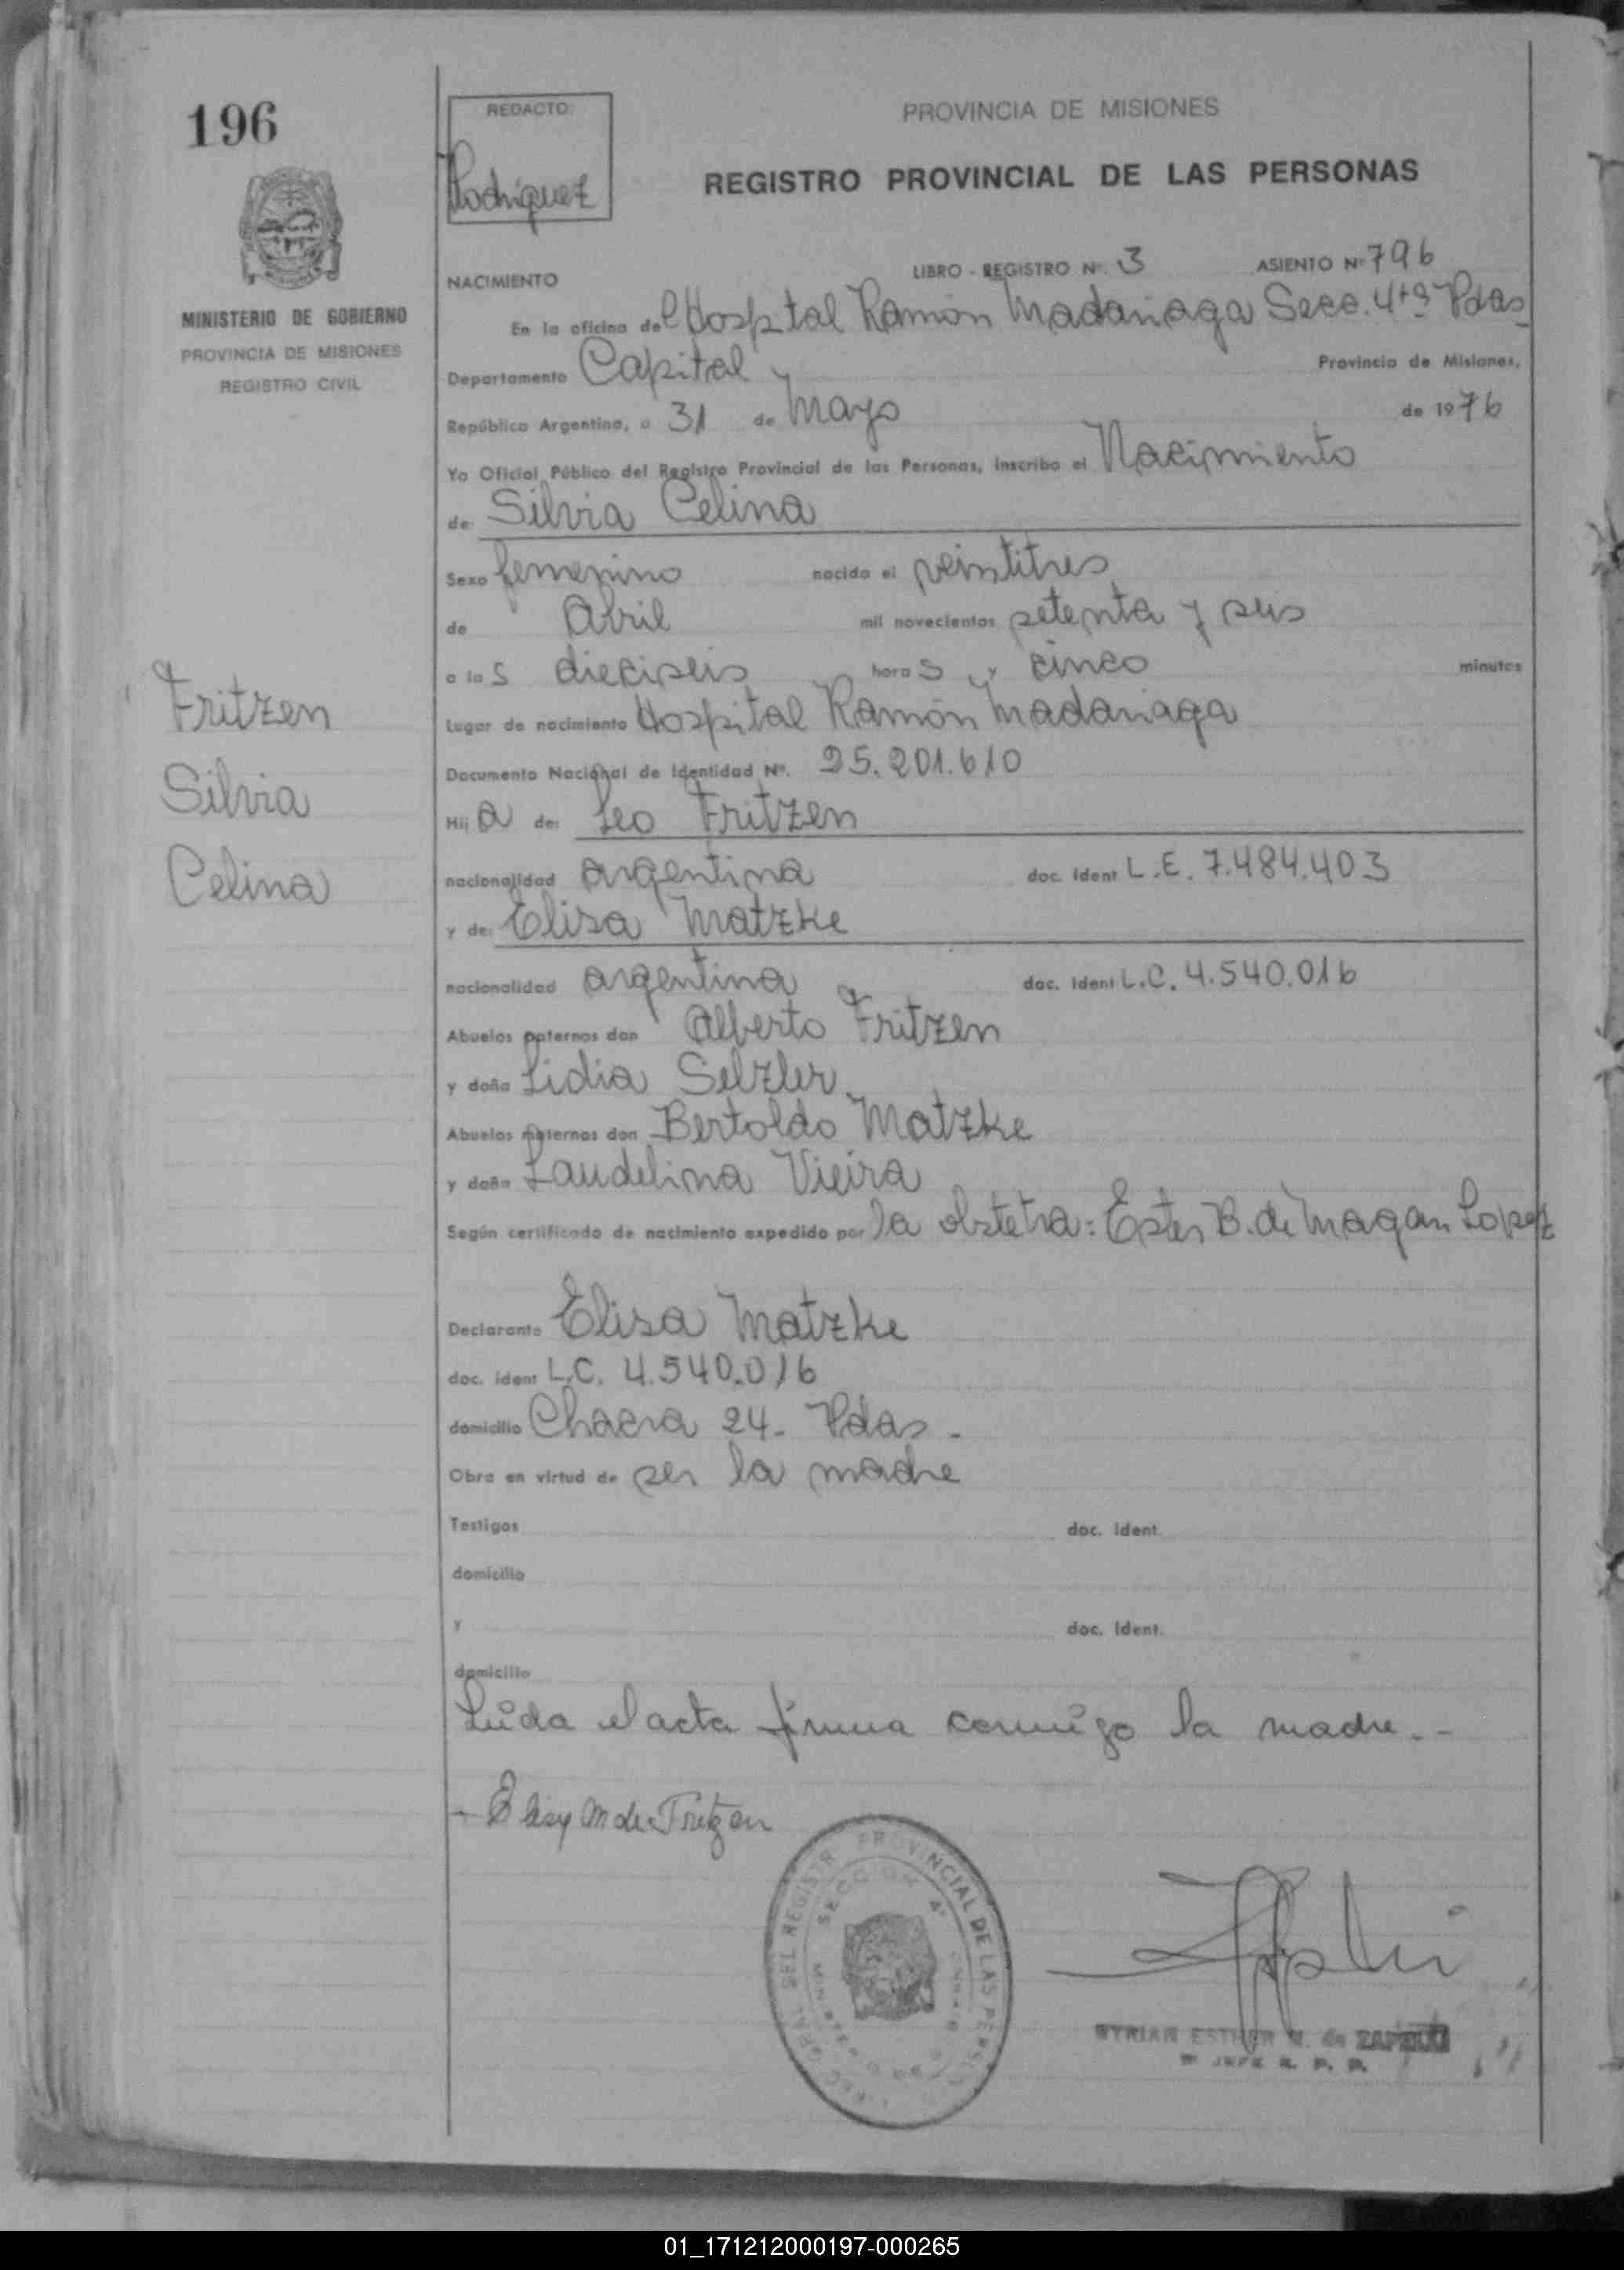 196
REDACTO:
Rodriguez
PROVINCIA DE MISIONES
REGISTRO PROVINCIAL DE LAS PERSONAS
MINISTERIO DE GOBIERNO
PROVINCIA DE MISIONES
REGISTRO CIVIL
NACIMIENTO LIBRO - REGISTRO Nº. 3 ASIENTO Nº 796
En la oficina del Hospital Ramón Madariaga Secc. 4ta Pdas
Departamento Capital Provincia de Misiones,
República Argentina, a 31 de Mayo de 1976
Yo Oficial Público del Registro Provincial de las Personas, inscribo el Nacimiento
de: Silvia Celina
Sexo femenino nacido el veintitres
de Abril mil novecientos setenta y seis
a las dieciseis horas y cinco minutos
Lugar de nacimiento Hospital Ramón Madariaga
Documento Nacional de Identidad Nº. 25.201.610
Hija de: Leo Fritzen
nacionalidad argentina doc. Ident L.E. 7.484.403
y de: Elisa Matzke
nacionalidad argentina doc. Ident L.C. 4.540.016
Abuelos paternos don Alberto Fritzen
y doña Lidia Selzler
Abuelos maternos don Bertoldo Matzke
y doña Laudelina Vieira
Según certificado de nacimiento expedido por la obstetra: Ester B. de Magan Lopez
Fritzen
Silvia
Celina
Declarante Elisa Matzke
doc. ident L.C. 4.540.016
domicilio Chacra 24- Pdas-
Obra en virtud de ser la madre
Testigos doc. ident.
domicilio
y doc. Ident.
domicilio
Leída el acta firma conmigo la madre.-
- Elisy M de Fritzen
DEL REGISTR PROVINCIAL DE LAS PERS
SECCION 4ª
MYRIAN ESTHER M. de
JEFE R. P. P.
01_171212000197-000265